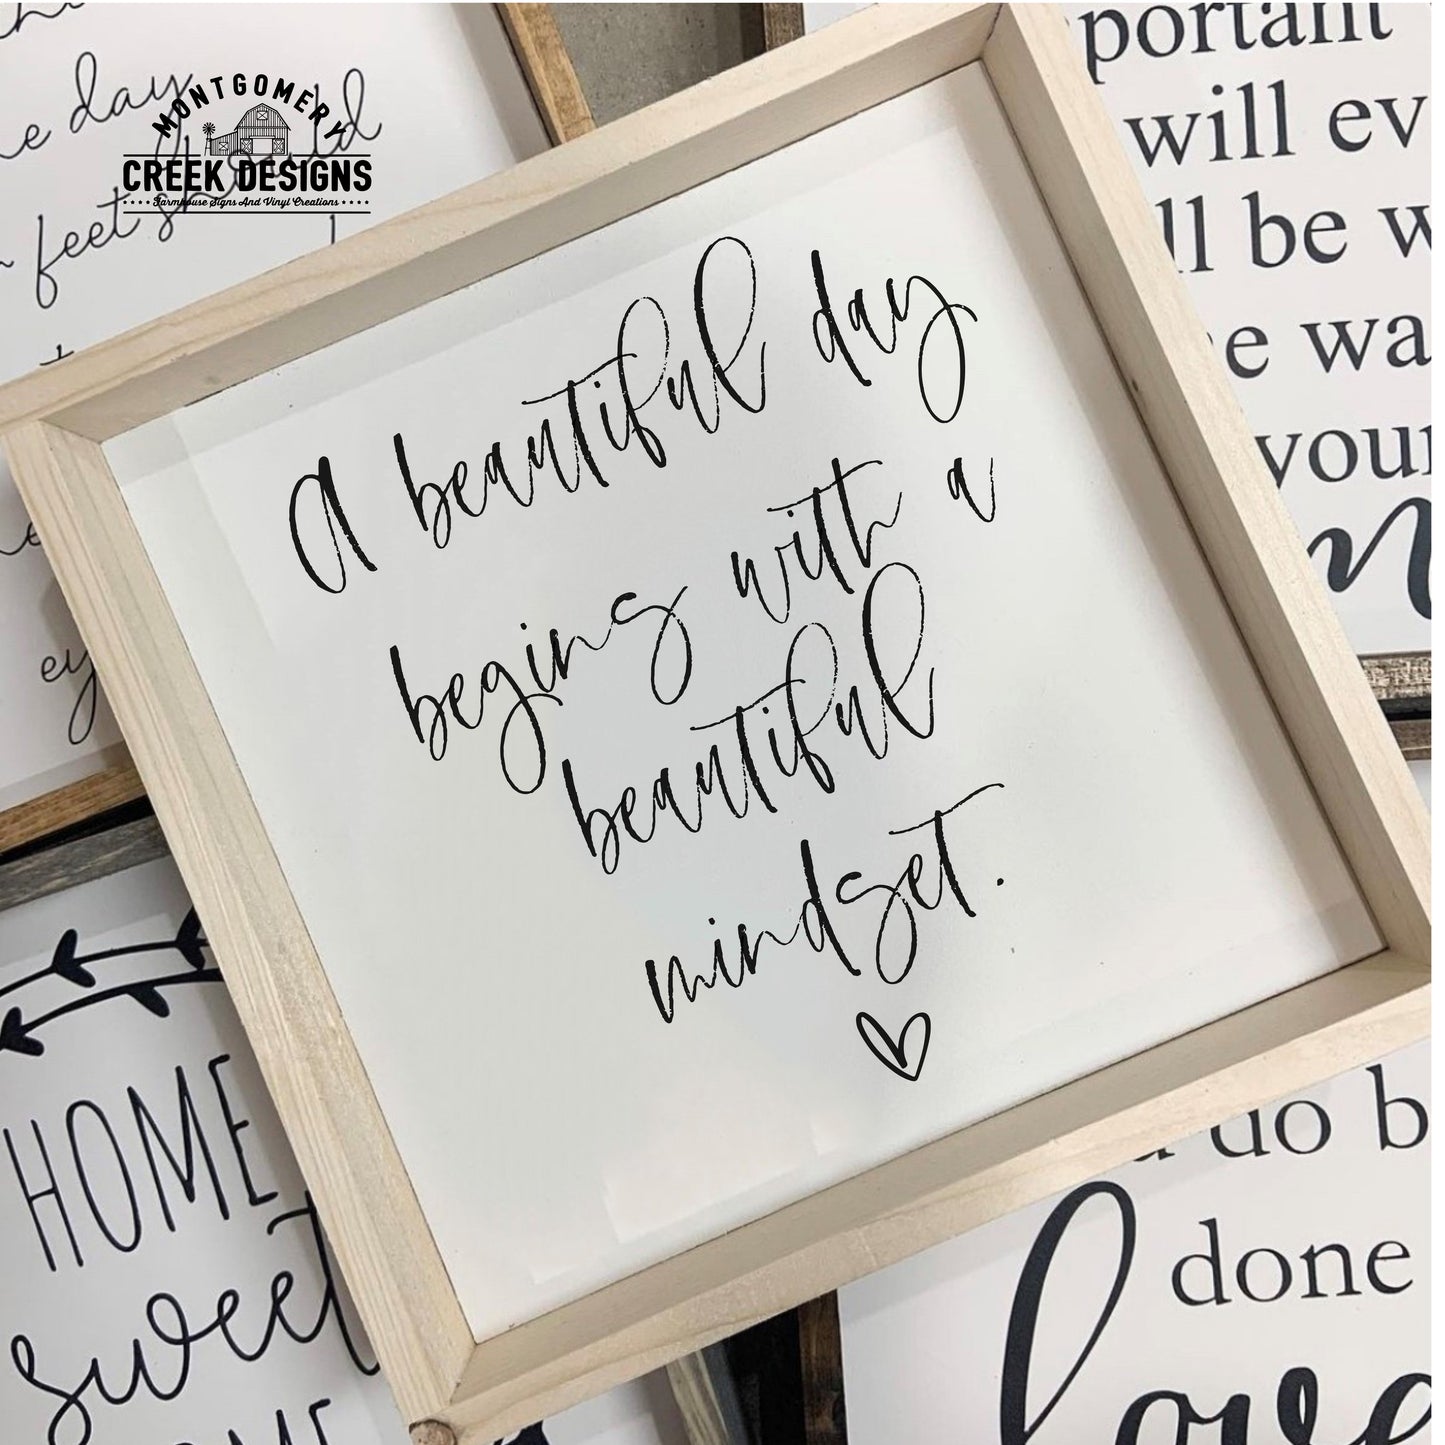 e day
feet should
MONTGOMERY
CREEK DESIGNS
Farmhouse Signs And Vinyl Creations
A beautiful day
begins with a
beautiful
mindset.
portant
will ev
ll be w
e wa
your
ey
HOME
sweet
do b
done
love